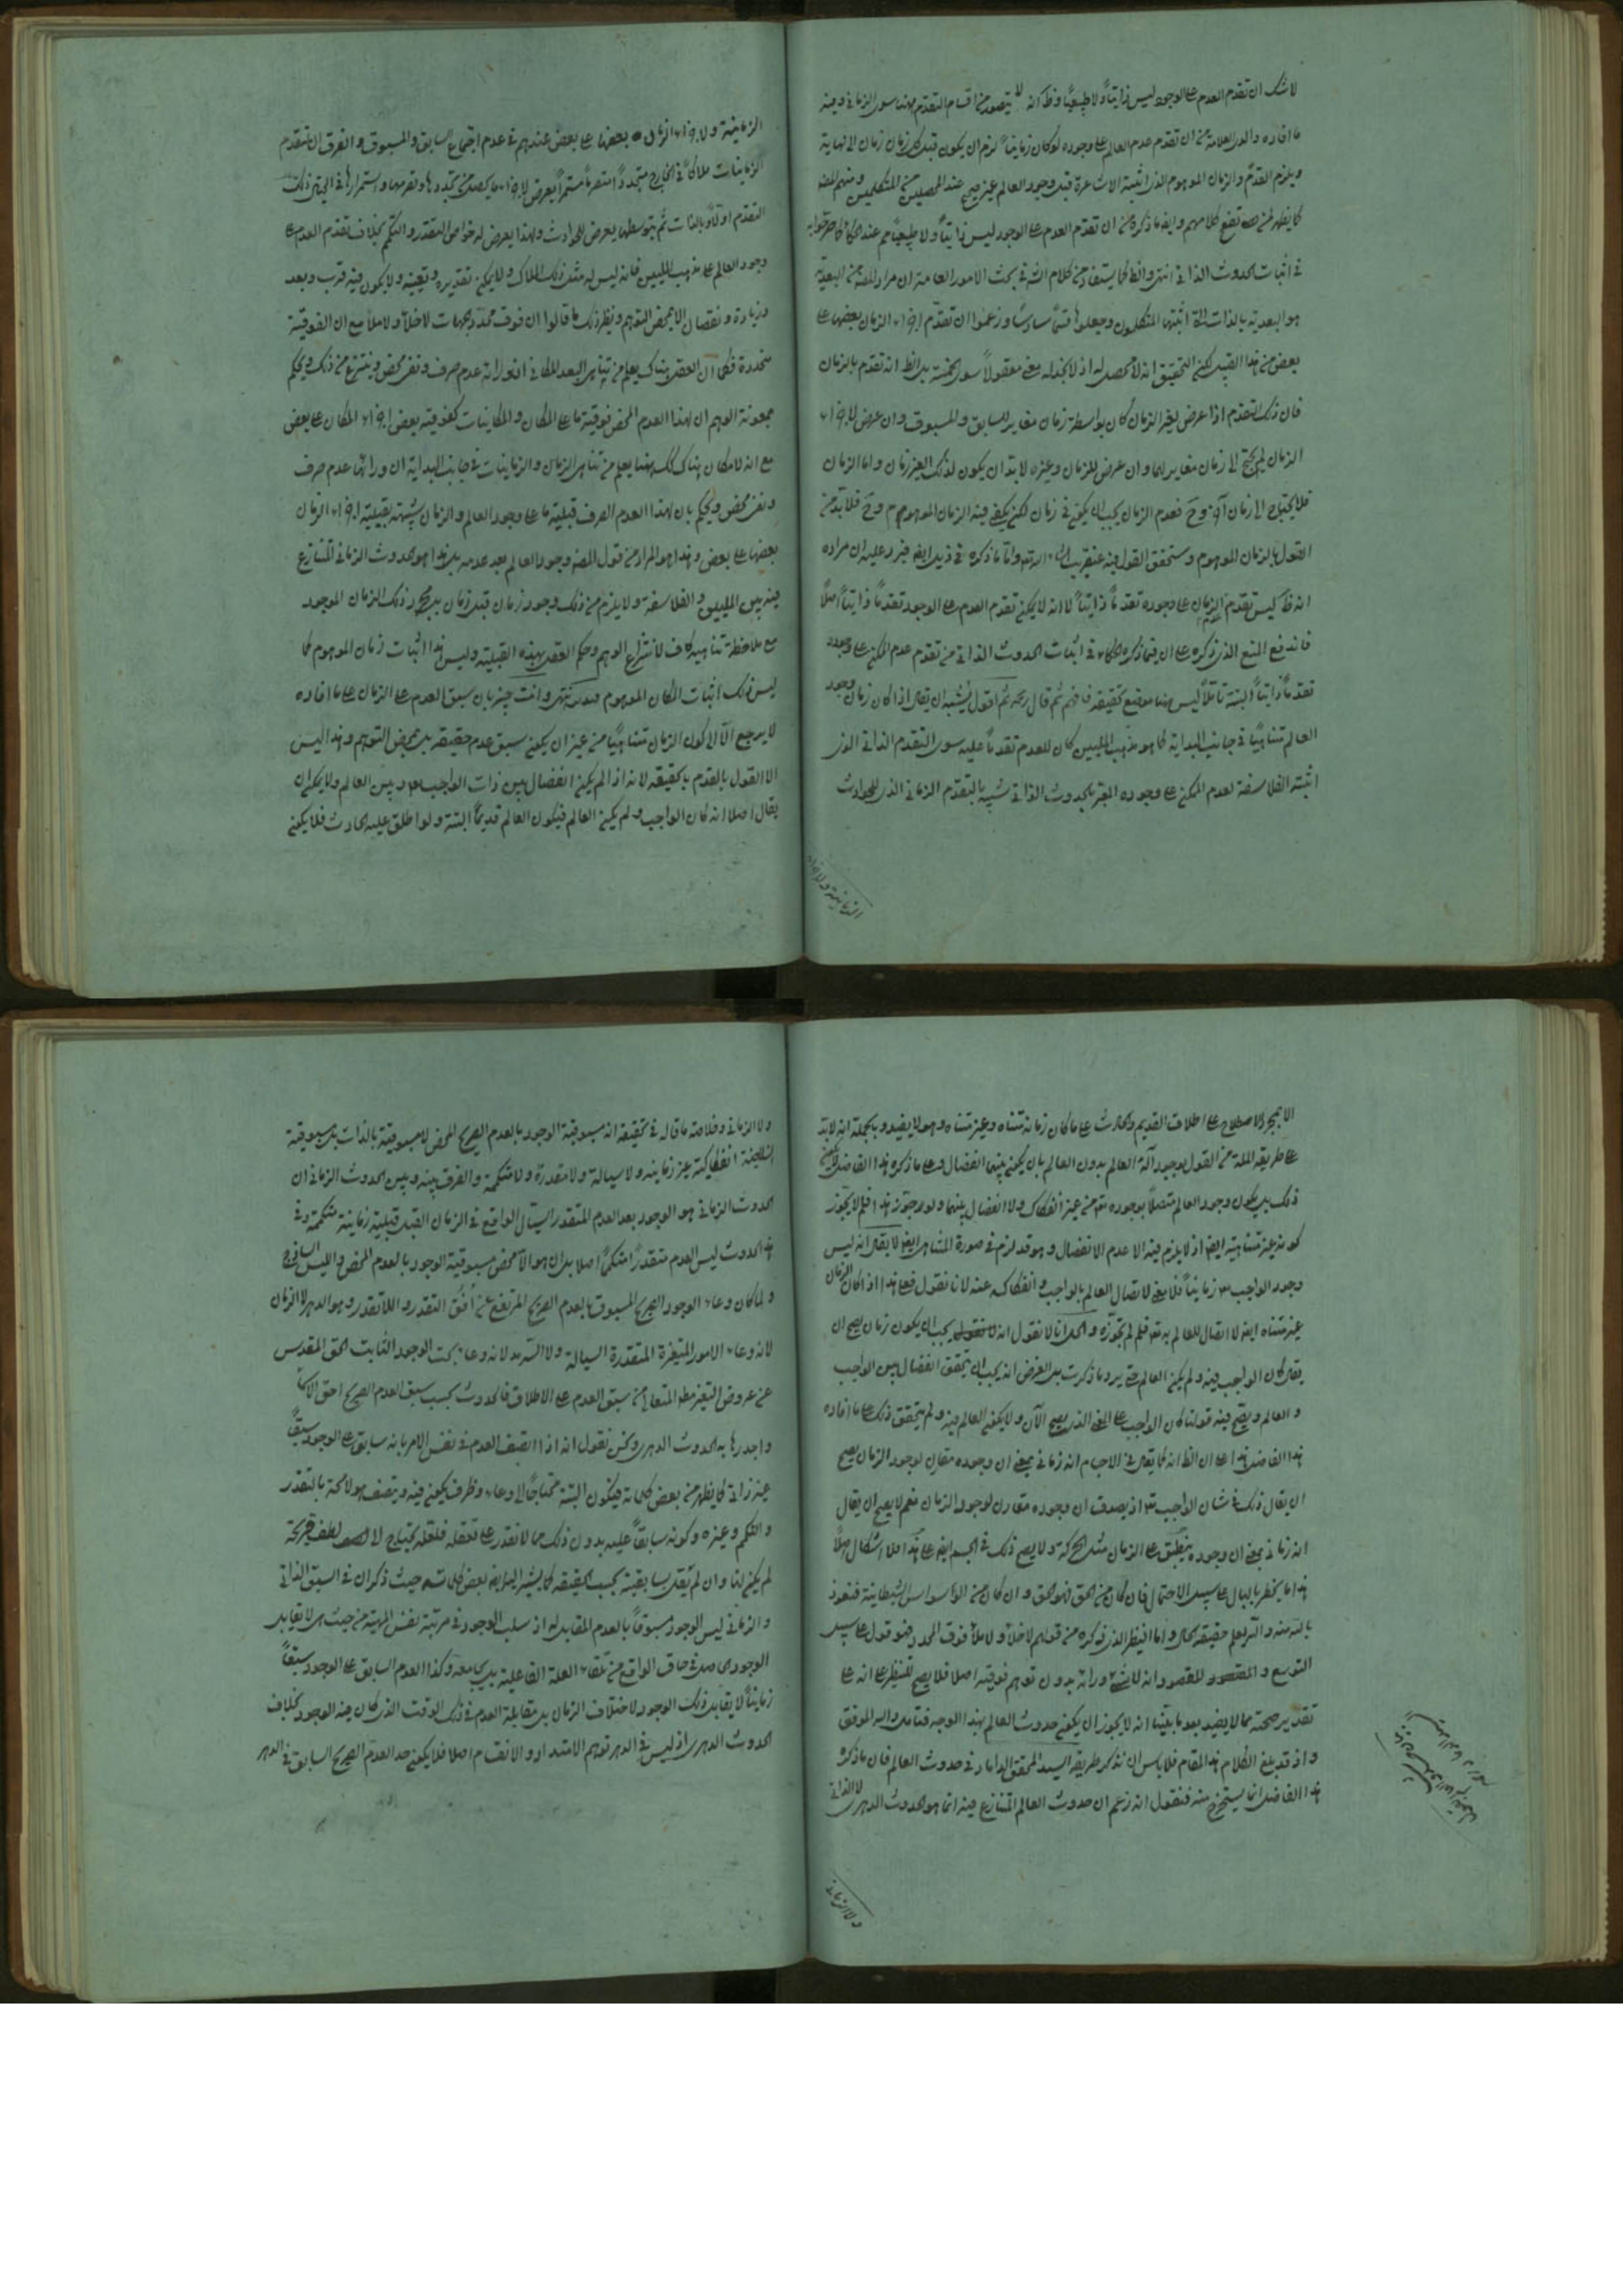 لا شك ان تقدم العدم على الوجود ليس ذاتياً ولا طبيعياً وظ انه لا يتصور من اقسام التقدم ههنا سوى الزماني وفيه
ما افاده والدى العلامة من ان تقدم عدم العالم على وجوده لو كان زمانياً لزم ان يكون قبل كل زمان زمان الى نهاية
ويلزم القدم والزمان الموهوم الذى اثبته الاشاعرة قبل وجود العالم غير صحيح عند المحصلين من المتكلمين ومنهم المص
كما يظهر لمن تصفح كلامهم وايضا ما ذكره من ان تقدم العدم على الوجود ليس ذاتياً ولا طبيعياً مم عند الحكماء كما صرحوا به
فى اثبات الحدوث الذاتى انتهى والظ كما يستفاد من كلام الش فى بحث الامور العامة ان مراد المص من البعدية
هو البعدية بالذات التى اثبتها المتكلمون وجعلوها قسماً سادساً وزعموا ان تقدم اجزاء الزمان بعضها على
بعض من هذا القبيل لكن التحقيق انه لا محصل له اذ لا نجد له معنى معقولاً سوى الخمسة بل الظ انه تقدم بالزمان
فان ذلك التقدم اذا عرض لغير الزمان كان بواسطة زمان مغاير للسابق والمسبوق وان عرض لاجزاء
الزمان لم يحتج الى زمان مغاير لهما وان عرض للزمان وغيره لا بد ان يكون لذلك الغير زمان واما الزمان
فلا يحتاج الى زمان آخر وح فعدم الزمان يجب ان يكون فى زمان لكن يكفى فيه الزمان الموهوم وح فلا بد من
القول بالزمان الموهوم وستحقق القول فيه عنقريب ان شاء الله واما ما ذكره فى ذيل ايض فيرد عليه ان مراده
انه ظ ليس تقدم عدم الزمان على وجوده تقدماً ذاتياً لا انه لا يمكن تقدم العدم على الوجود تقدماً ذاتياً اصلاً
فاندفع المنع الذى ذكره على ان فيما ذكره الحكماء فى اثبات الحدوث الذاتى من تقدم عدم الممكن على وجوده
تقدماً ذاتياً البتة تأملاً ليس هنا موضع تحقيقه فافهم ثم قال رحمه ثم اقول يشبه ان يقال اذا كان زمان وجود
العالم متناهياً فى جانب البداية كما هو مذهب المليين كان للعدم تقدماً عليه سوى التقدم الذاتى الذى
اثبته الفلاسفة لعدم الممكن على وجوده المعبر بالحدوث الذاتى شبيه بالتقدم الزمانى الذى للحوادث
الزمانية ولاجزاء
الزمانية ولاجزاء الزمان بعضها على بعض عندهم فى عدم اجتماع السابق والمسبوق والفرق ان لتقدم
الزمانيات ملاكاً فى الخارج متجدداً متصرماً مستمراً يعرض لاجزاء ما يحصل من تجددها وتصرمها واستمرارها فى الخيال ذلك
التقدم اولاً وبالذات ثم بتوسطها يعرض للحوادث ولهذا يعرض له خواص التقدر والتكمم بخلاف تقدم العدم على
وجود العالم على مذهب المليين فانه ليس له مثل ذلك الملاك ولا يمكن تقديره وتعيينه ولا يكون فيه قرب وبعد
وزيادة ونقصان الا بمحض التوهم ونظير ذلك ما قالوا ان فوق محدد الجهات لا خلأ ولا ملأ مع ان الفوقية
متحددة فكما ان العقل هناك يعلم من تناهى البعد المكانى ان وراءه عدم صرف ونفى محض وينتزع من ذلك ويحكم
بمعونة الوهم ان لهذا العدم المحض فوقية ما على المكان والمكانيات كفوقية بعض اجزاء المكان على بعض
مع انه لا مكان هناك كك ههنا يعلم من تناهى الزمان والزمانيات فى جانب البداية ان ورائها عدم صرف
ونفى محض ويحكم بان لهذا العدم الصرف قبلية ما على وجود العالم والزمان شبيهة بقبلية اجزاء الزمان
بعضها على بعض وهذا هو المراد من قول المص وجود العالم بعد عدمه بل هذا هو الحدوث الزمانى المتنازع
فيه بين المليين والفلاسفة ولا يلزم من ذلك وجود زمان قبل زمان بل مجرد ذلك الزمان الموجود
مع ملاحظة تناهيه كاف لانتزاع الوهم وحكم العقل بهذه القبلية وليس هذا اثبات زمان الموهوم كما
ليس ذلك اثبات المكان الموهوم انتهى وانت خبير بان سبق العدم على الزمان على ما افاده
لا يرجع الا الى كون الزمان متناهياً من غير ان يكون سبق عدم حقيقة بل بمحض التوهم وهذا ليس
الا القول بالقدم بالحقيقة لانه اذا لم يكن انفصال بين ذات الواجب تعالى وبين العالم ولا يمكن ان
يقال اصلا انه كان الواجب ولم يكن العالم فيكون العالم قديماً البتة ولو اطلق عليه الحادث فلا يكون
الا بمجرد الاصطلاح على اطلاق القديم والحادث على ما كان زمانه متناه وغير متناه وهو لا يفيد وبالجملة انه لا بد
على طريقة الملة من القول بوجود آله العالم بدون العالم بان يكون بينهما انفصال وعلى ما ذكره هذا الفاضل لا يكون
ذلك بل يكون وجود العالم متصلاً بوجوده تعالى من غير انفكاك ولا انفصال بينهما ولو جوز هذا فلم لا يجوز
كونه غير متناهية ايض اذ لا يلزم فيه الا عدم الانفصال وهو قد لزم فى صورة التناهى ايض لا يقال انه ليس
وجود الواجب تعالى زمانياً فلا معنى لاتصال العالم بالواجب وانفكاكه عنه لانا نقول فعلى هذا اذا كان الزمان
غير متناه ايض لا اتصال للعالم به تعالى فلم لم تجوزه والحل انا لا نقول انه يجب ان يكون زمان يصح ان
يقال كان الواجب فيه ولم يكن العالم حتى يرد ما ذكرت بل الغرض انه يجب ان يتحقق انفصال بين الواجب
والعالم ويصح فيه قولنا كان الواجب على المعنى الذى يصح الآن ولا يكون العالم فيه ولم يتحقق ذلك على ما افاده
هذا الفاضل هذا على ان الظ انه كما يقال فى الاجسام انه زمانى بمعنى ان وجوده مقارن لوجود الزمان يصح
ان يقال ذلك فى شان الواجب تعالى اذ يصدق ان وجوده مقارن لوجود الزمان نعم لا يصح ان يقال
انه زمانى بمعنى ان وجوده ينطبق على الزمان مثل الحركة ولا يصح ذلك فى الجسم ايض على هذا فلا اشكال اصلاً
هذا ما يخطر بالبال على سبيل الاحتمال فان كان من الحق فهو الحق وان كان من الوساوس الشيطانية فنعوذ
بالله منه والله يعلم حقيقة الحال واما النظير الذى ذكره من قولهم لا خلأ ولا ملأ فوق المحدد فهو قول على سبيل
التوسع والمقصود انه لا شئ ورائه بدون توهم فوقية اصلا فلا يصح للتنظير على انه على
تقدير صحته مما لا يفيد بعد ما بينا انه لا يجوز ان يكون حدوث العالم بهذا الوجه فتامل والله الموفق
واذ قد بلغ الكلام هذا المقام فلا باس ان نذكر طريقة السيد المحقق الداماد فى حدوث العالم فان ما ذكره
هذا الفاضل انما يستخرج منه فنقول انه زعم ان حدوث العالم المتنازع فيه انما هو الحدوث الدهرى لا الذاتى
ولا الزمانى
ولا الزمانى وخلاصة ما قاله فى تحقيقه انه مسبوقية الوجود بالعدم الصريح المحض لا مسبوقية بالذات بل مسبوقية
انسلاخية انفكاكية غير زمانية ولا سيالة ولا متقدرة ولا متكممة والفرق بينه وبين الحدوث الزمانى ان
الحدوث الزمانى هو الوجود بعد العدم المتقدر السيال الواقع فى الزمان القبل قبلية زمانية متكممة وفى
هذا الحدوث ليس العدم متقدراً متكمماً اصلا بل ان هو الا محض مسبوقية الوجود بالعدم المحض والليس الساذج
ولما كان وعاء الوجود الصريح المسبوق بالعدم الصريح المرتفع عن افق التقدر واللاتقدر وهو الدهر لا الزمان
لانه وعاء الامور المتغيرة المتقدرة السيالة ولا السرمد لانه وعاء بحت الوجود الثابت الحق المقدس
عن عروض التغير مط المتعالى من سبق العدم على الاطلاق فالحدوث بحسب سبق العدم الصريح احق الاسماء
واجدرها به الحدوث الدهرى ونحن نقول انه اذا اتصف العدم فى نفس الامر بانه سابق على الوجود سبقاً
غير ذاتى كما يظهر من بعض كلماته فيكون البتة محتاجاً الى وعاء وظرف يكون فيه ويتصف هو لا محة بالتقدر
والتكمم وغيره وكونه سابقاً عليه بدون ذلك مما لا نقدر على تعقله فلعله يحتاج الى لطف قريحة
لم يكن لنا وان لم نقل بسابقية بحسب الحقيقة كما يشير اليه بعض كلماته حيث ذكر ان فى السبق الذاتى
والزمانى ليس الوجود مسبوقاً بالعدم المقابل له اذ سلب الوجود فى مرتبة نفس المهية من حيث هى لا يقابل
الوجود الحاصل فى حاق الواقع من تلقاء العلة الفاعلية بل يجامعه وكذا العدم السابق على الوجود سبقاً
زمانياً لا يقابل ذلك الوجود لاختلاف الزمان بل مقابله العدم فى ذلك الوقت الذى كان فيه الوجود بخلاف
الحدوث الدهرى اذ ليس فى الدهر توهم الامتداد والانقسام اصلا فلا يكون حد العدم الصريح السابق فى الدهر